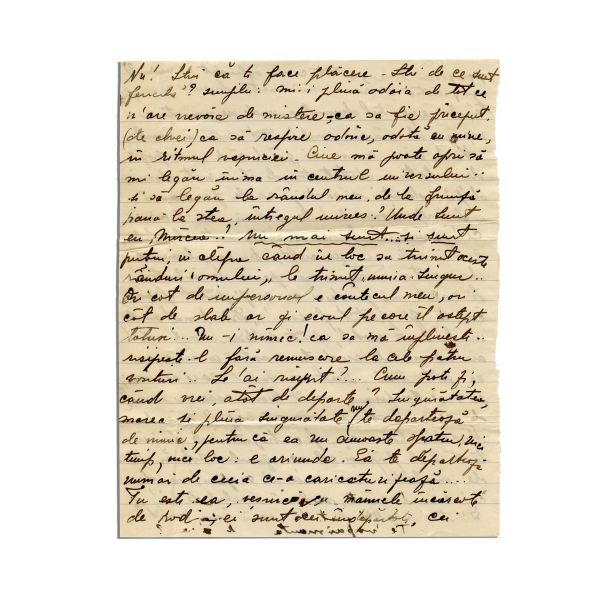 Nu! Știi că te face plăcere - Știi de ce sunt
fericită? simplu: mi-i plină odaia de tot ce
n'are nevoie de mistere, ca să fie priceput.
(de chei) ca să respire odaie, odată cu mine,
în ritmul veșniciei. Cine mă poate opri să
mi legăn inima în centrul universului..
și să legăn la rândul meu, de la frunză
pana la stea, întregul univers? Unde sunt
eu, Mircea..? Nu mai sunt... și sunt
putin, în clipa când în loc să trimit aceste
rânduri "omului", le trimit numia singur..
Ori cât de impersonal e cântecul meu, ori
cât de slab ar fi ecoul pe care îl aștept
totuși... Nu-i nimic! ca să mă împlinești..
risipește-l fără remușcare la cele patru
vânturi.. Le'ai risipit?... Cum poți fi,
când vrei, atât de departe? Singurătatea,
marea și plina singurătate nu te departează
de nimic, pentru că ea nu cunoaște spațiu, nici
timp, nici loc: e oriunde. Ea te departează
numai de ceia ce-a caricaturizează...
Tu ești ea, veșnic cu mâinile încărcate
de rod și cei sunt cei îndepărtați, cei